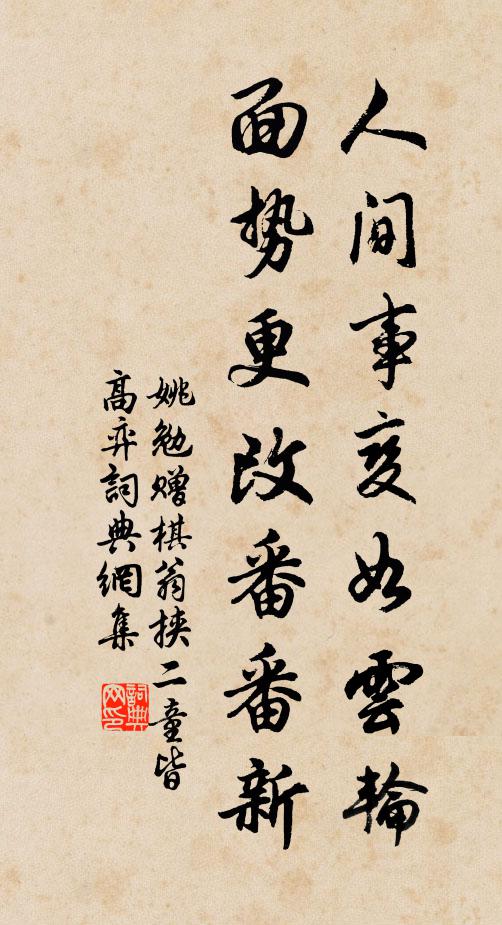 人間事变如雲輪
面势更改番番新
姚勉赠棋翁挾二童皆
高弈詞典網集
詞典
网印